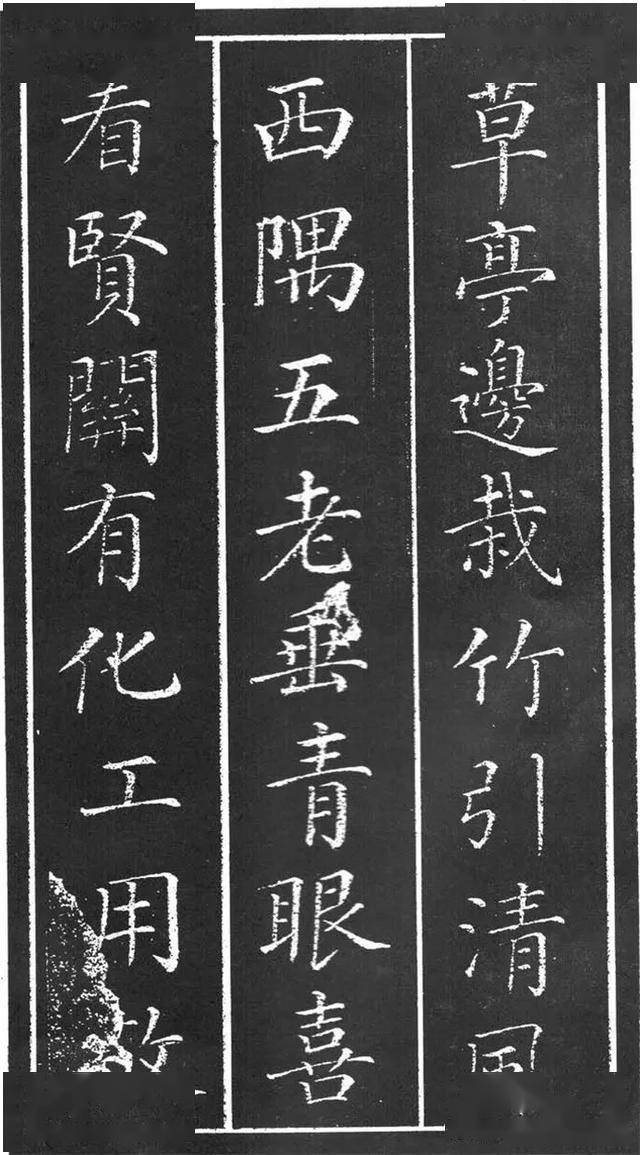 草亭邊栽竹引清風
西隅五老垂青眼喜
看賢關有化工用